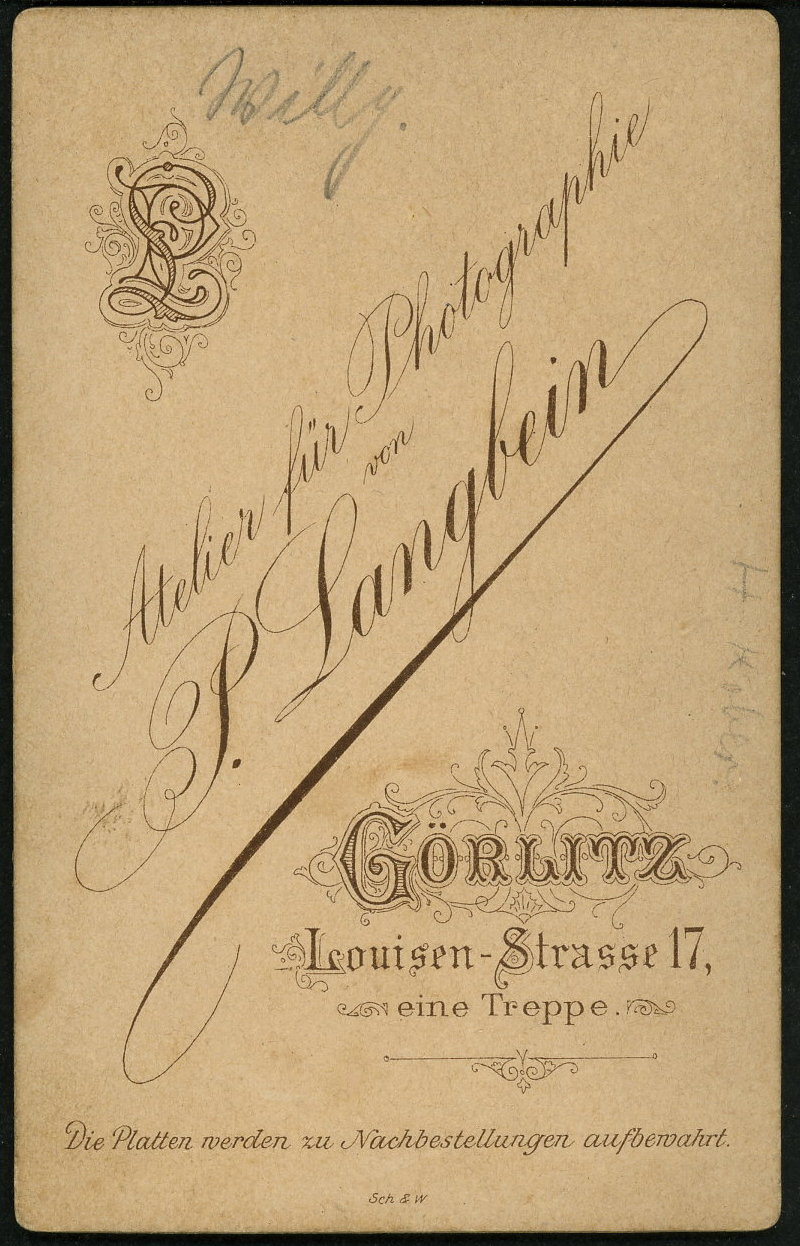 Willy.
PL
Atelier für Photographie
von
P. Langbein
H. Kober.
GÖRLITZ
Louisen-Strasse 17,
eine Treppe.
Die Platten werden zu Nachbestellungen aufbewahrt.
Sch & W